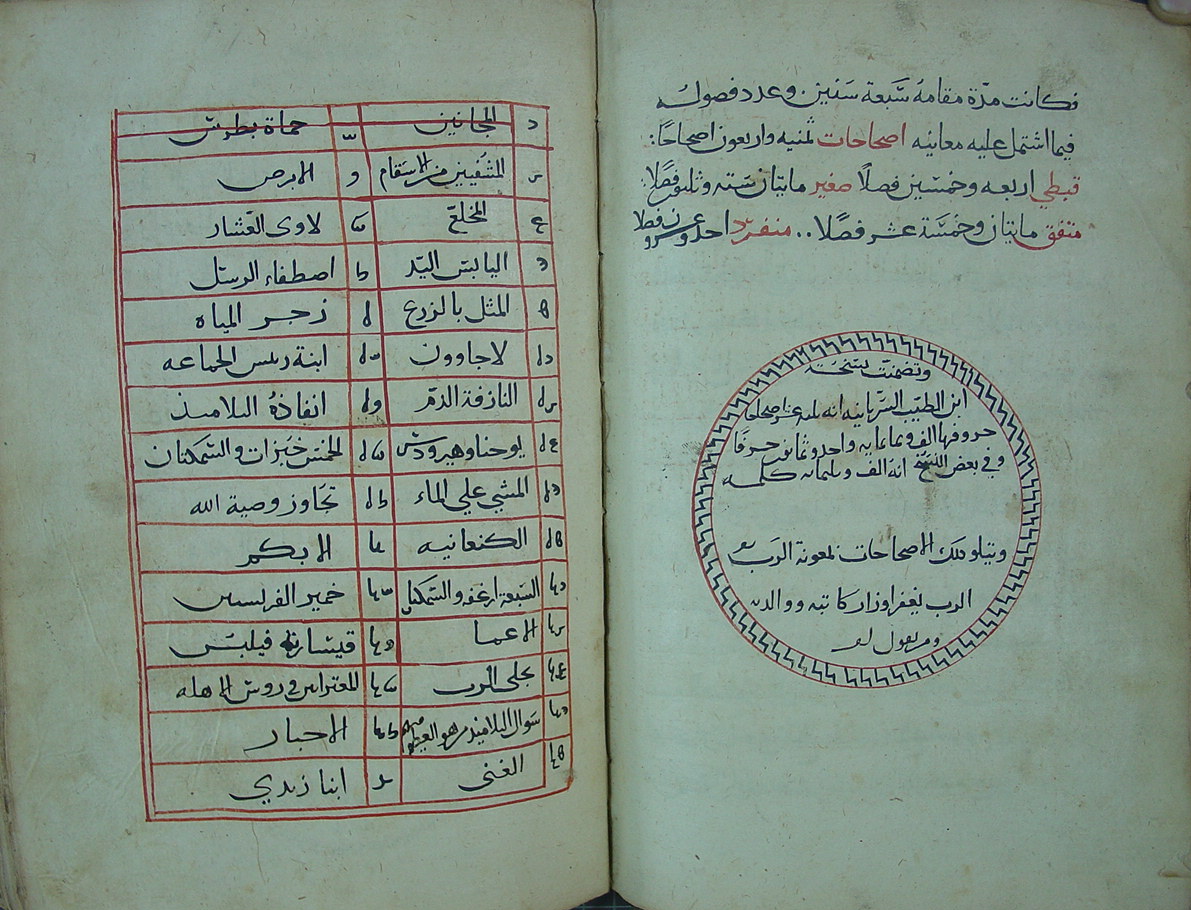 فكانت مدة مقامه سبعة سنين وعدد فصوله
فيما اشتمل عليه معانيه اصحاحات ثمنيه واربعون اصحاحًا:
قبطي اربعه وخمسين فصلًا صغير مايتان سته وثلثو فصلًا
متفق مايتان وخمسة عشر فصلًا .. منفرد احد وعشرون فصلا
وتضمنت نسخة
ابن الطيب السريانيه انه ثلثه عشر اصحاحا
حروفها الف وثمانمايه واحد وثمانون حرفًا
وفي بعض النسخ انه الف وثلثمايه كلمه
ويتلو ذلك الاصحاحات بمعونة الرب
الرب يغفر اوزار كاتبه ووالديه
ومن يقول
المجانين حماة بطرس
المشفيين من الاسقام و الابرص
المخلع لاوى العشار
اليابس اليد اصطفاء الرسل
المثل بالزرع زجر المياه
لاجاوون ابنة رييس الجماعه
النازفة الدم انفاذهُ التلاميذ
يوحنا وهيرودس الخمس خبزات والسمكتان
المشي علي الماء تجاوز وصية الله
الكنعانيه الابكم
السبعة ارغفه والسمكتان خمير الفريسيين
الاعما قيسارية فيلبس
تجلى الرب المعترى في روس الاهله
سوال التلاميذ من هو العظيم منهم الاحبار
الغنى ابنا زبدي